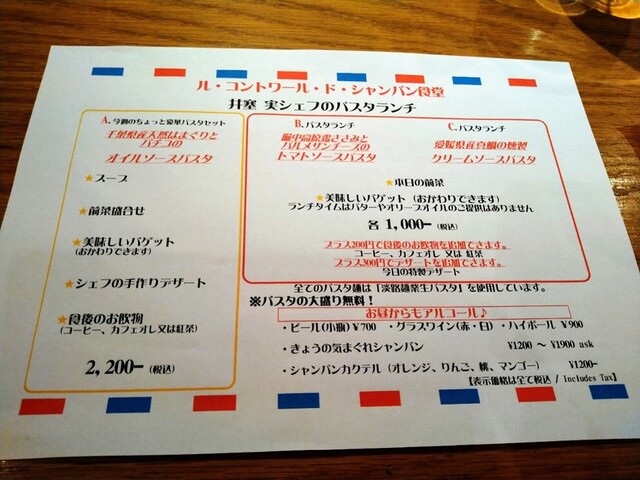 ル・コントワール・ド・シャンパン食堂
井塞 実シェフのパスタランチ
A. 今週のちょっと豪華パスタセット
千葉県産天然はまぐりと
パチコの
オイルソースパスタ
★スープ
★前菜盛合せ
★美味しいバゲット
(おかわりできます)
★シェフの手作りデザート
★食後のお飲物
(コーヒー、カフェオレ又は紅茶)
2,200- (税込)
B. パスタランチ
備中高原鶏ささみと
パルメザンチーズの
トマトソースパスタ
C. パスタランチ
愛媛県産真鯛の燻製
クリームソースパスタ
★本日の前菜
★美味しいバゲット (おかわりできます)
ランチタイムはバターやオリーブオイルのご提供はありません
各 1,000- (税込)
プラス200円で食後のお飲物を追加できます。
コーヒー、カフェオレ 又は 紅茶
プラス300円でデザートを追加できます。
今日の特製デザート
全てのパスタ麺は「淡路麺業生パスタ」を使用しています。
※パスタの大盛り無料！
お昼からもアルコール♪
・ビール(小瓶)¥700 ・グラスワイン(赤・白)・ハイボール ¥900
・きょうの気まぐれシャンパン ¥1200 〜 ¥1900 ask
・シャンパンカクテル (オレンジ、りんご、桃、マンゴー) ¥1200-
【表示価格は全て税込 / Includes Tax】